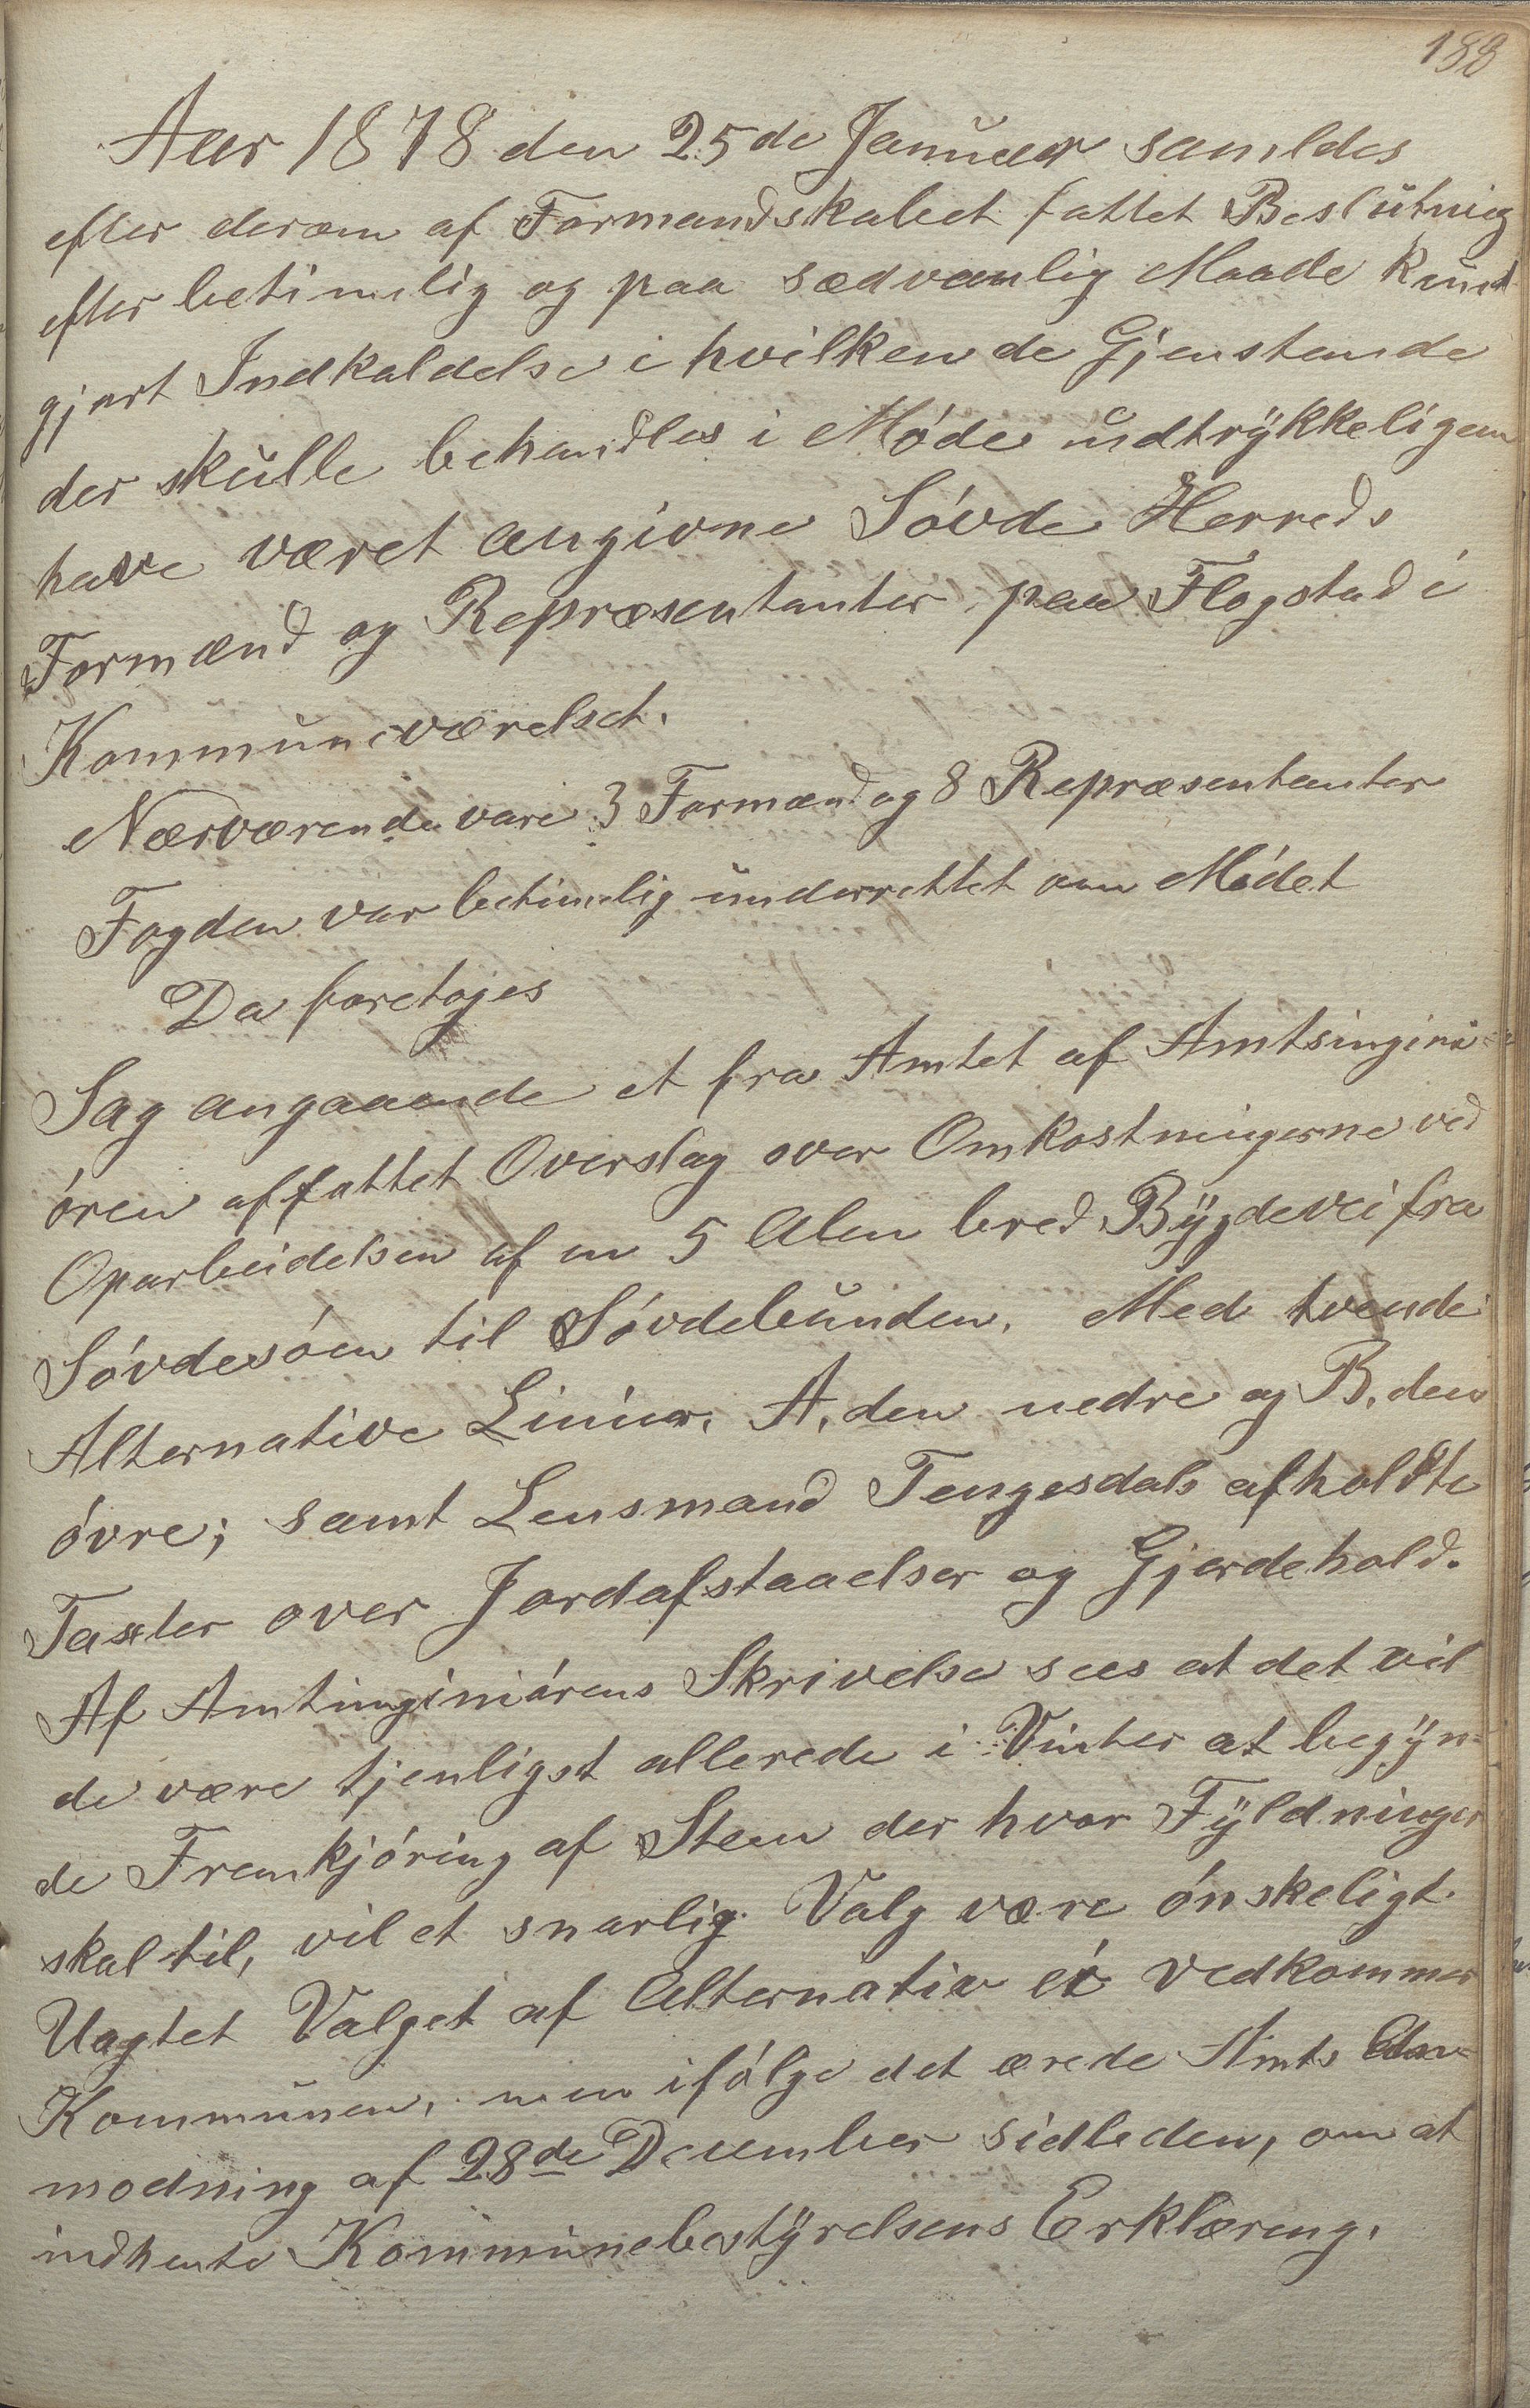 188
Aar 1878 den 25de Januar samldes
efter derom af Formandskabet fattet Beslutning
efter betimelig og paa sædvanlig Maade kund
gjort Indkaldelse i hvilken de Gjenstande
der skulle behandles i Møde udtrykkeligen
have været angivne Søvde Herreds
Formænd og Repræsentanter paa Flogstad i
Kommuneværelset.
Nærværende vare 3 Formænd og 8 Repræsentanter
Fogden var betimelig underrettet om Mødet
Da foretoges
Sag angaaende et fra Amtet af Amtsingini-
øren affattet Overslag over Omkostningerne ved
Oparbeidelsen af en 5 Alen bred Bygdevei fra
Søvdesøen til Søvdebunden. Med tvende
Alternative Linier. A, den nedre og B, den
øvre; samt Lensmand Tengesdals afholdte
Taxter over Jordafstaaelser og Gjerdehold.
Af Amtinginiørens Skrivelse sees at det vil
de være tjenligst allerede i Vinter at begyn-
de Fremkjøring af Sten der hvor Fyldninger
skal til, vil et snarlig Valg være ønskeligt.
Uagtet Valget af Alternativ ei vedkommer
Kommunen, men ifølge det ærede Amts An-
modning af 28de December sidleden, om at
indhente Kommunebestyrelsens Erklæring.